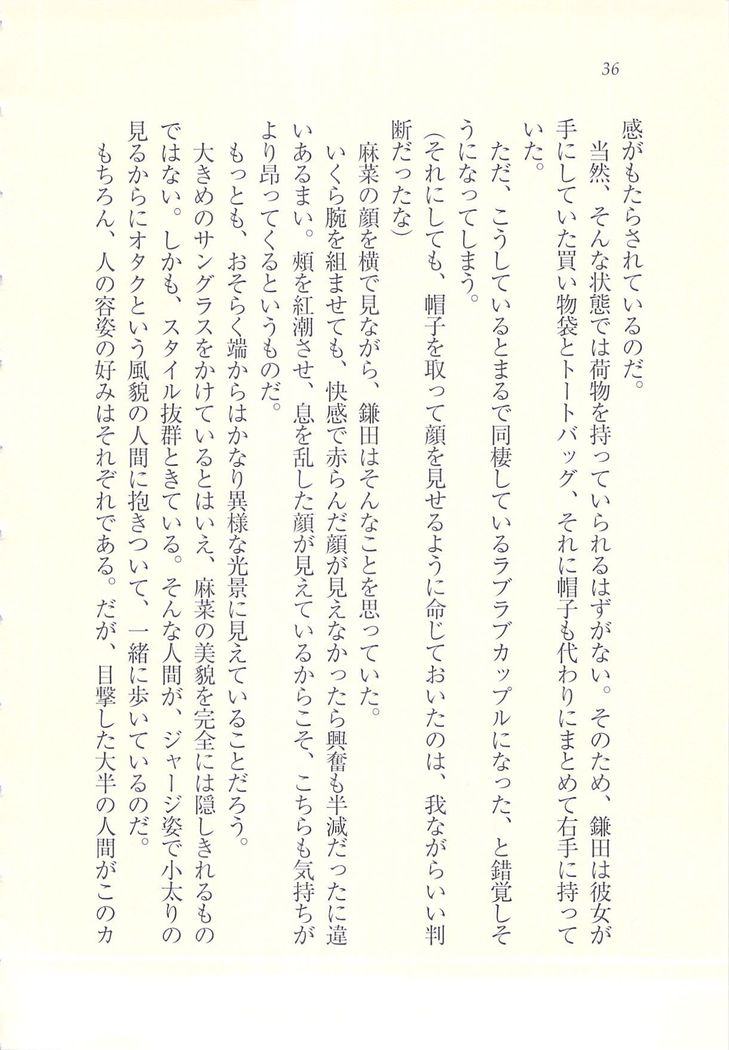 36
感がもたらされているのだ。
当然、そんな状態では荷物を持っていられるはずがない。そのため、鎌田は彼女が
手にしていた買い物袋とトートバッグ、それに帽子も代わりにまとめて右手に持って
いた。
ただ、こうしているとまるで同棲しているラブラブカップルになった、と錯覚しそ
うになってしまう。
（それにしても、帽子を取って顔を見せるように命じておいたのは、我ながらいい判
断だったな）
麻菜の顔を横で見ながら、鎌田はそんなことを思っていた。
いくら腕を組ませても、快感で赤らんだ顔が見えなかったら興奮も半減だったに違
いあるまい。頰を紅潮させ、息を乱した顔が見えているからこそ、こちらも気持ちが
より昂ってくるというものだ。
もっとも、おそらく端からはかなり異様な光景に見えていることだろう。
大きめのサングラスをかけているとはいえ、麻菜の美貌を完全には隠しきれるもの
ではない。しかも、スタイル抜群ときている。そんな人間が、ジャージ姿で小太りの
見るからにオタクという風貌の人間に抱きついて、一緒に歩いているのだ。
もちろん、人の容姿の好みはそれぞれである。だが、目撃した大半の人間がこのカ